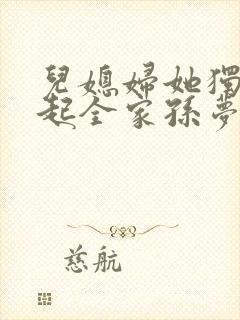 兒媳婦她獨
起全家孫夢
慈航